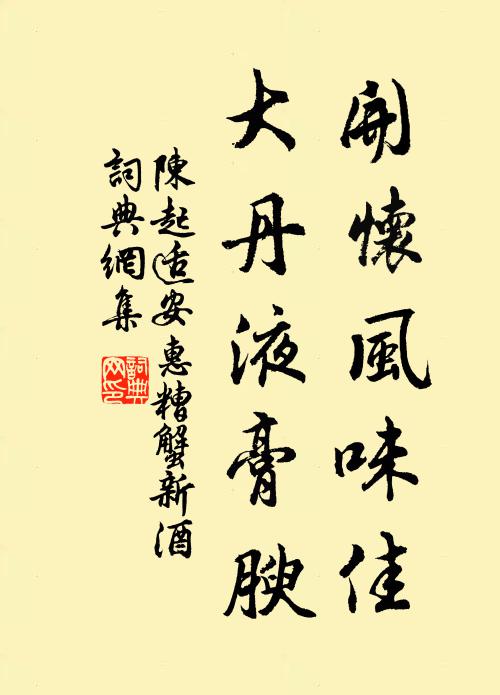 開懷風味佳
大丹液膏腴
陳起适安惠糟蟹新酒
詞典網集
詞典网印